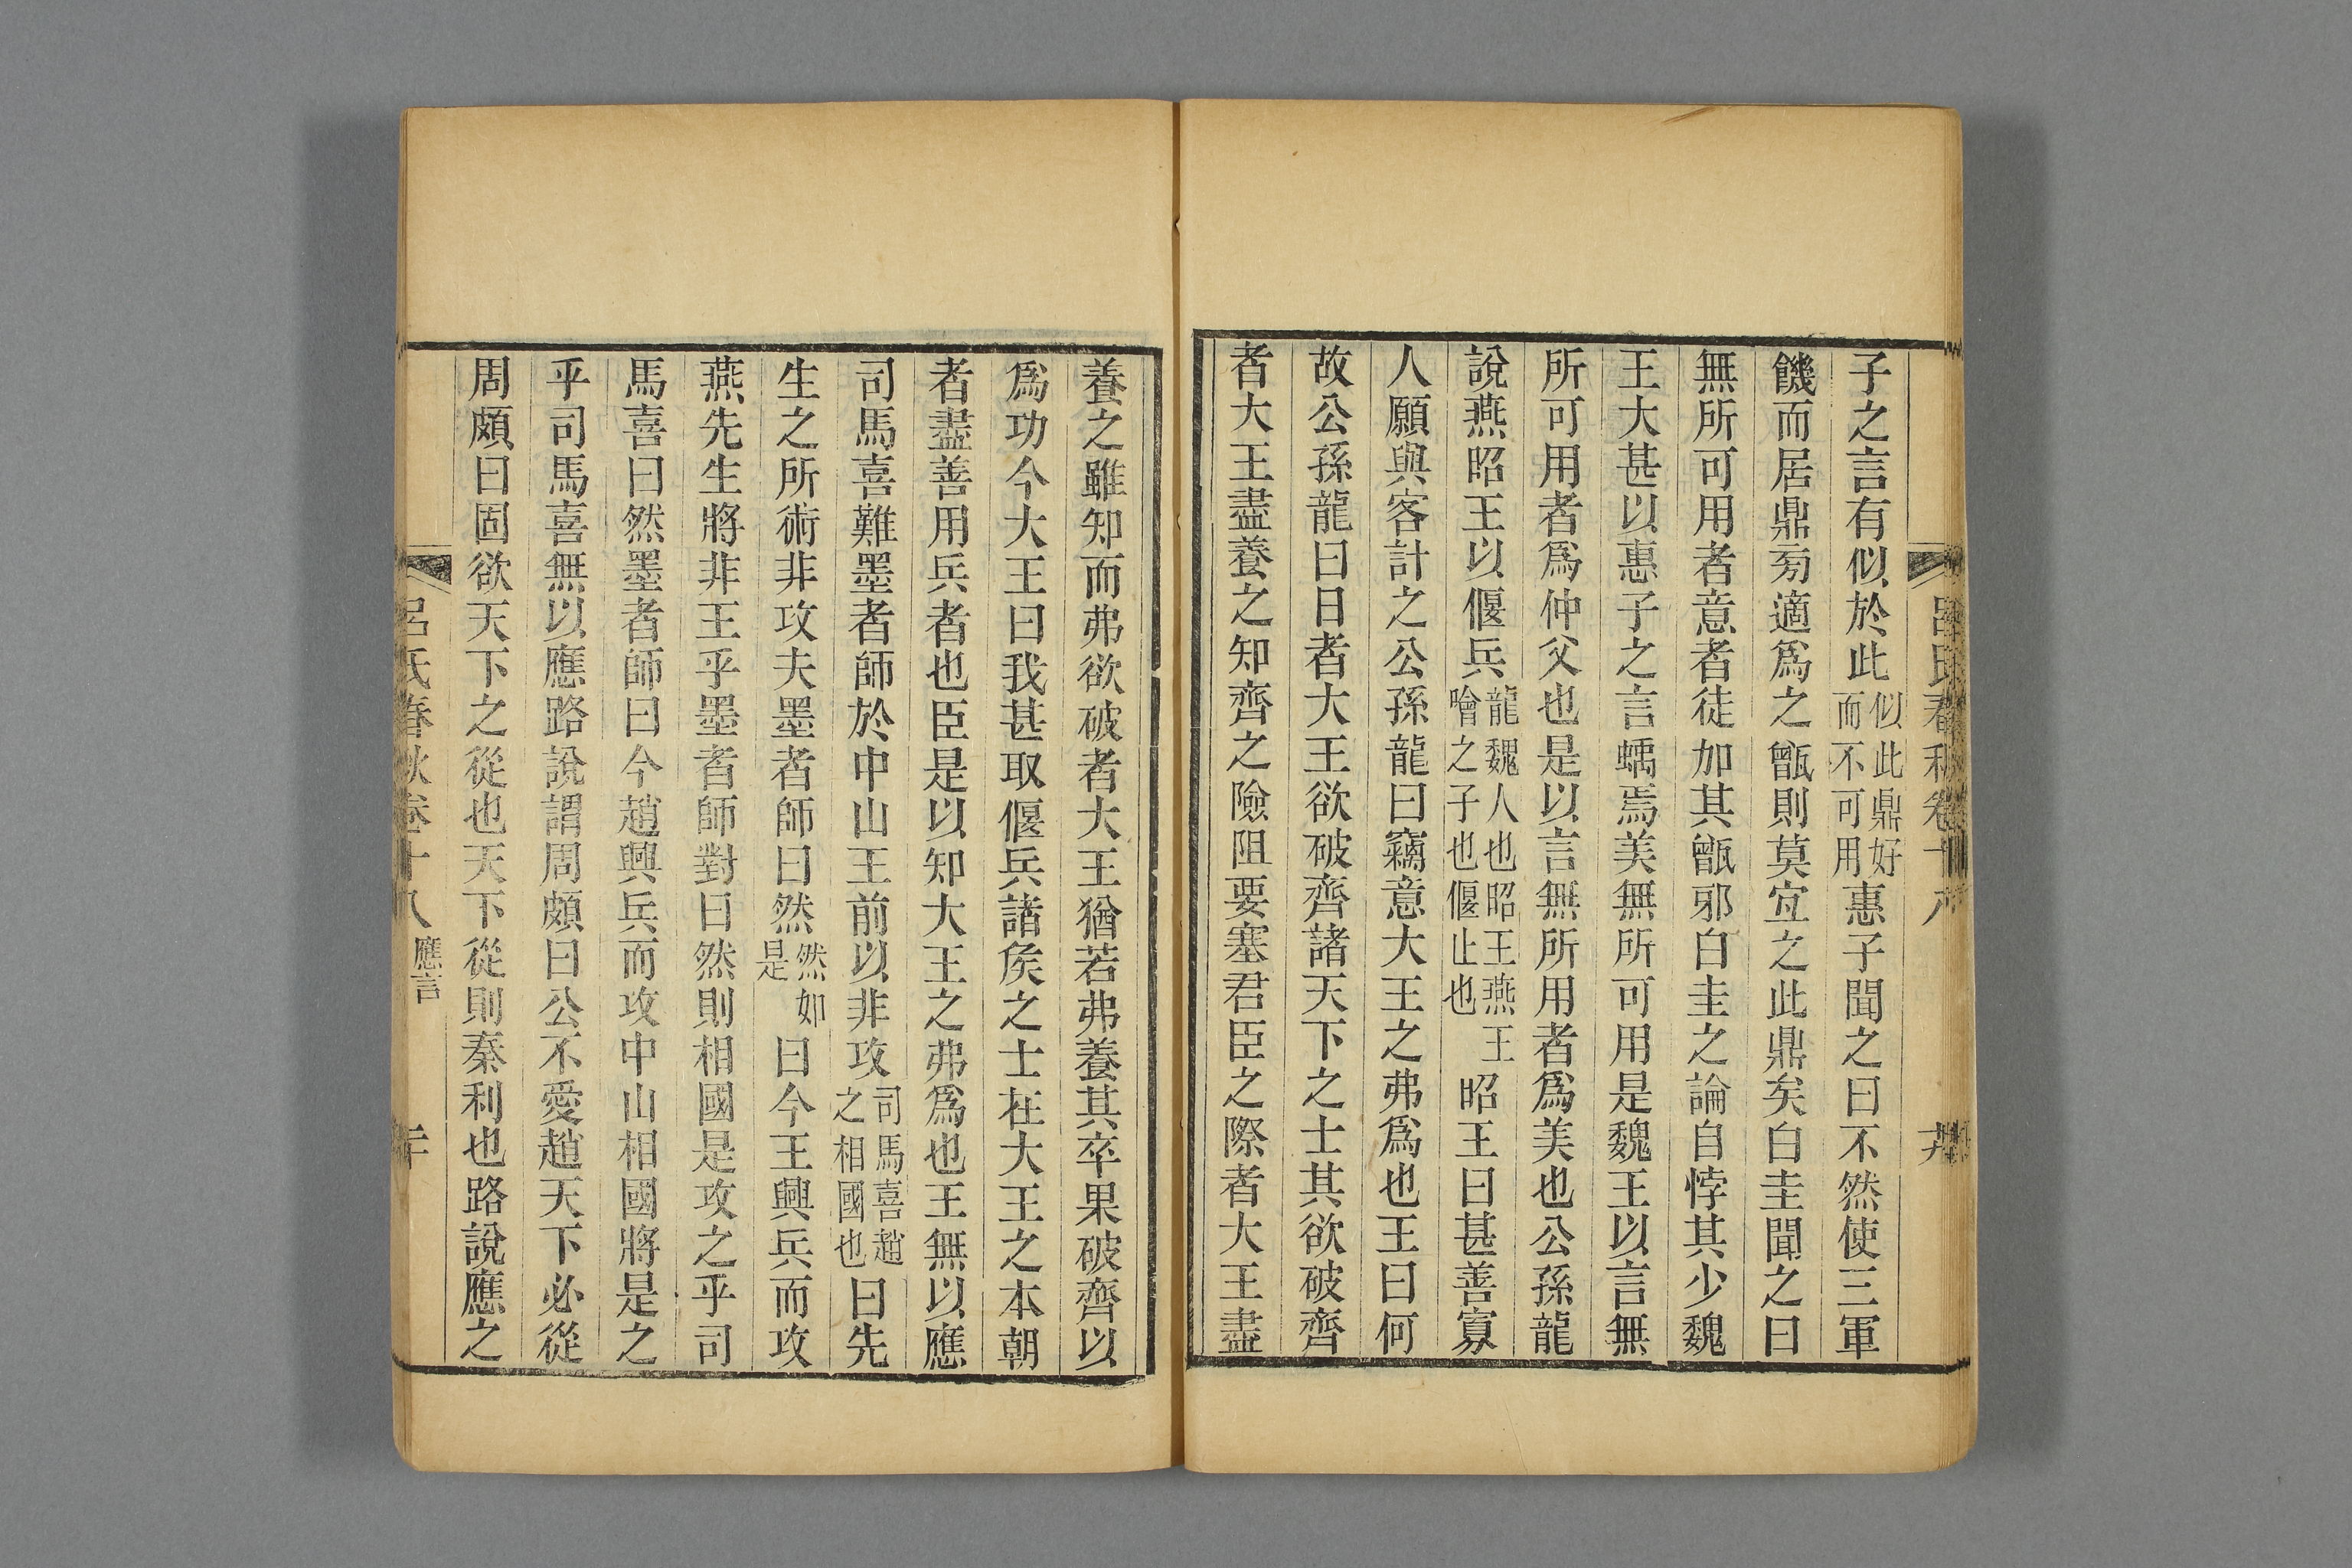 呂氏春秋卷十八
子之言有似於此似此鼎好而不可用惠子聞之曰不然使三軍
饑而居鼎旁適爲之甑則莫宜之此鼎矣白圭聞之曰
無所可用者意者徒加其甑邪白圭之論自悖其少魏
王大甚以惠子之言蝺焉美無所可用是魏王以言無
所可用者爲仲父也是以言無所用者爲美也公孫龍
說燕昭王以偃兵龍魏人也昭王燕王噲之子也偃止也昭王曰甚善寡
人願與客計之公孫龍曰竊意大王之弗爲也王曰何
故公孫龍曰日者大王欲破齊諸天下之士其欲破齊
者大王盡養之知齊之險阻要塞君臣之際者大王盡
養之雖知而弗欲破者大王猶若弗養其卒果破齊以
爲功今大王曰我甚取偃兵諸矦之士在大王之本朝
者盡善用兵者也臣是以知大王之弗爲也王無以應
司馬喜難墨者師於中山王前以非攻司馬喜趙之相國也曰先
生之所術非攻夫墨者師曰然然如是曰今王興兵而攻
燕先生將非王乎墨者師對曰然則相國是攻之乎司
馬喜曰然墨者師曰今趙興兵而攻中山相國將是之
乎司馬喜無以應路說謂周頗曰公不愛趙天下必從
周頗曰固欲天下之從也天下從則秦利也路說應之
呂氏春秋卷十八 應言 二十